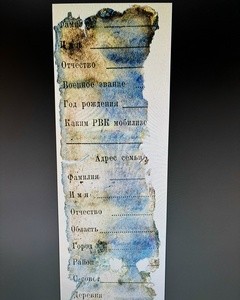 Имя
Отчество
Военное звание
Год рождения
Каким РВК мобилизо
Адрес семьи
Фамилия
Имя
Отчество
Область
Город
Район
Деревня